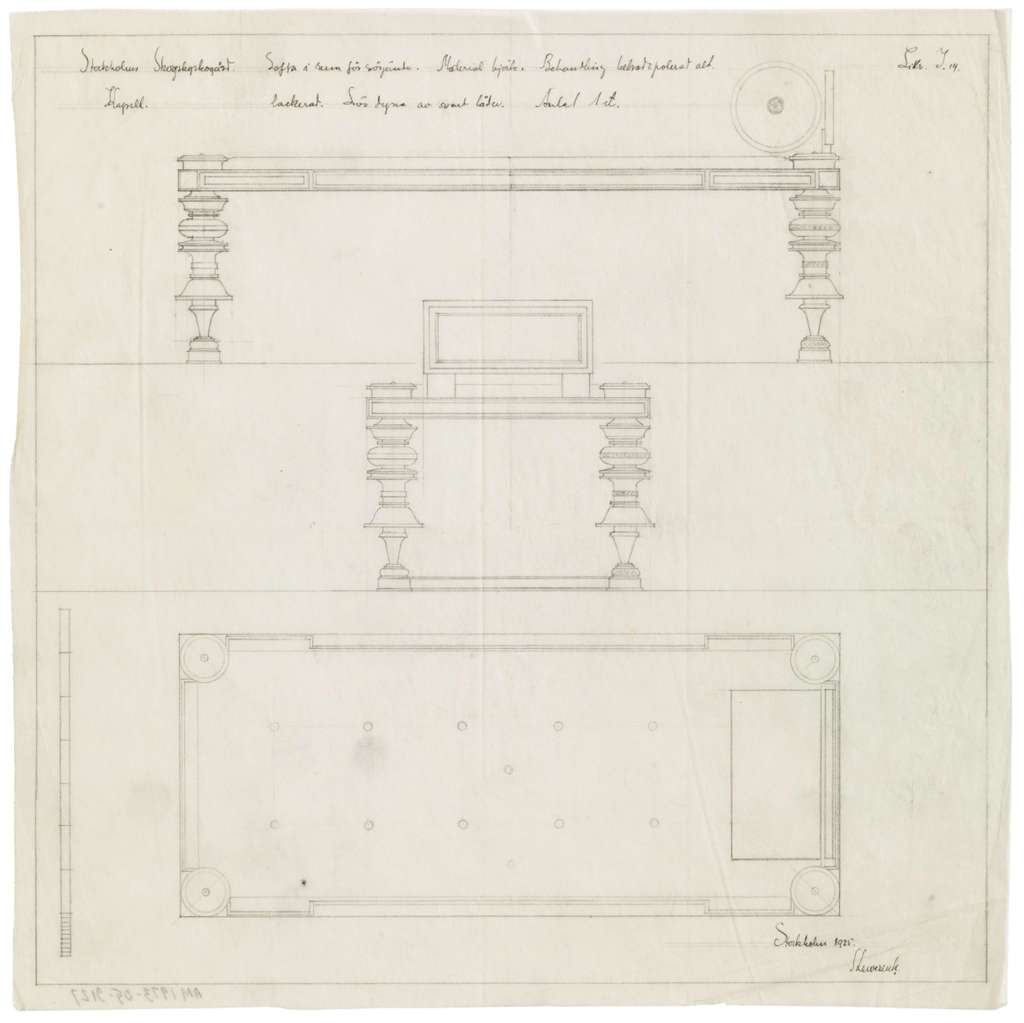 Stockholms Skogskyrkogård. Soffa i rum för sörjande. Material björk. Behandling betsat & polerat alt. Litt. I. 14.
Kapell. lackerat. Lös dyna av svart läder. Antal 1 st.
Stockholm 1925.
S Lewerentz
AM 1973-05-3127